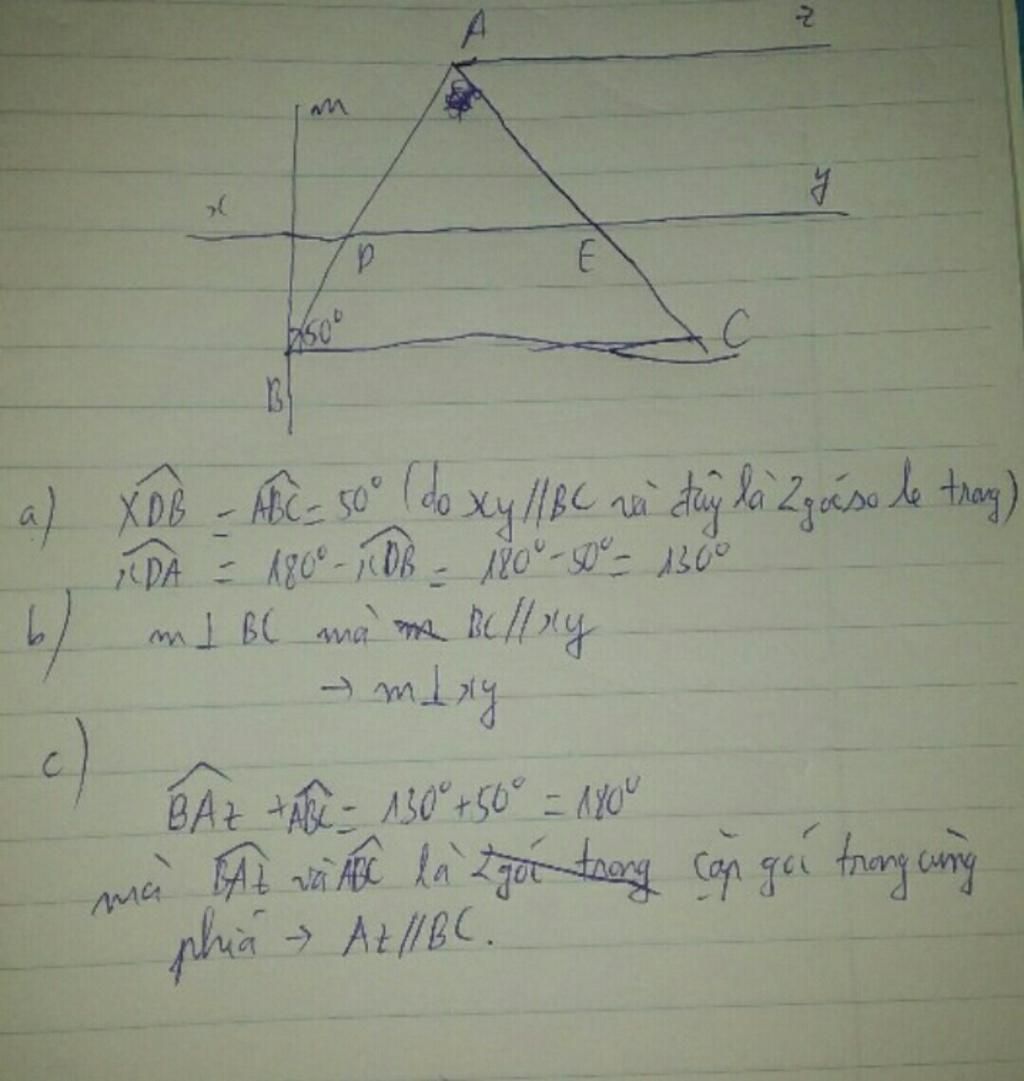 A
z
m
x
y
D
E
50°
C
B
a) XDB = ABC = 50° (do xy//BC và đây là 2 góc so le trong)
xDA = 180° - xDB = 180° - 50° = 130°
b) m ⊥ BC mà BC//xy
→ m ⊥ xy
c)
BAz + ABC = 130° + 50° = 180°
mà BAz và ABC là 2 góc trong cặp góc trong cùng
phía → Az//BC.